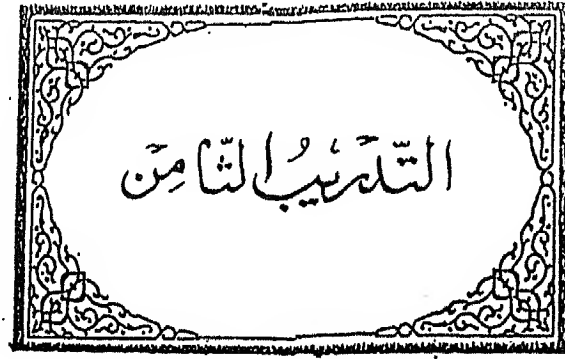 التَّدرِيبُ الثَّامِن